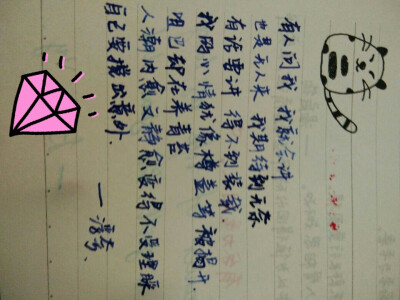 有人问我 我就会讲
但是无人来 我期待到无奈
有话要讲 得不到装载
我的心情犹像樽盖等被揭开.
咀巴却在养青苔
人潮内愈文静愈变得不受理睬
自己要搞出意外.
—浮夸、